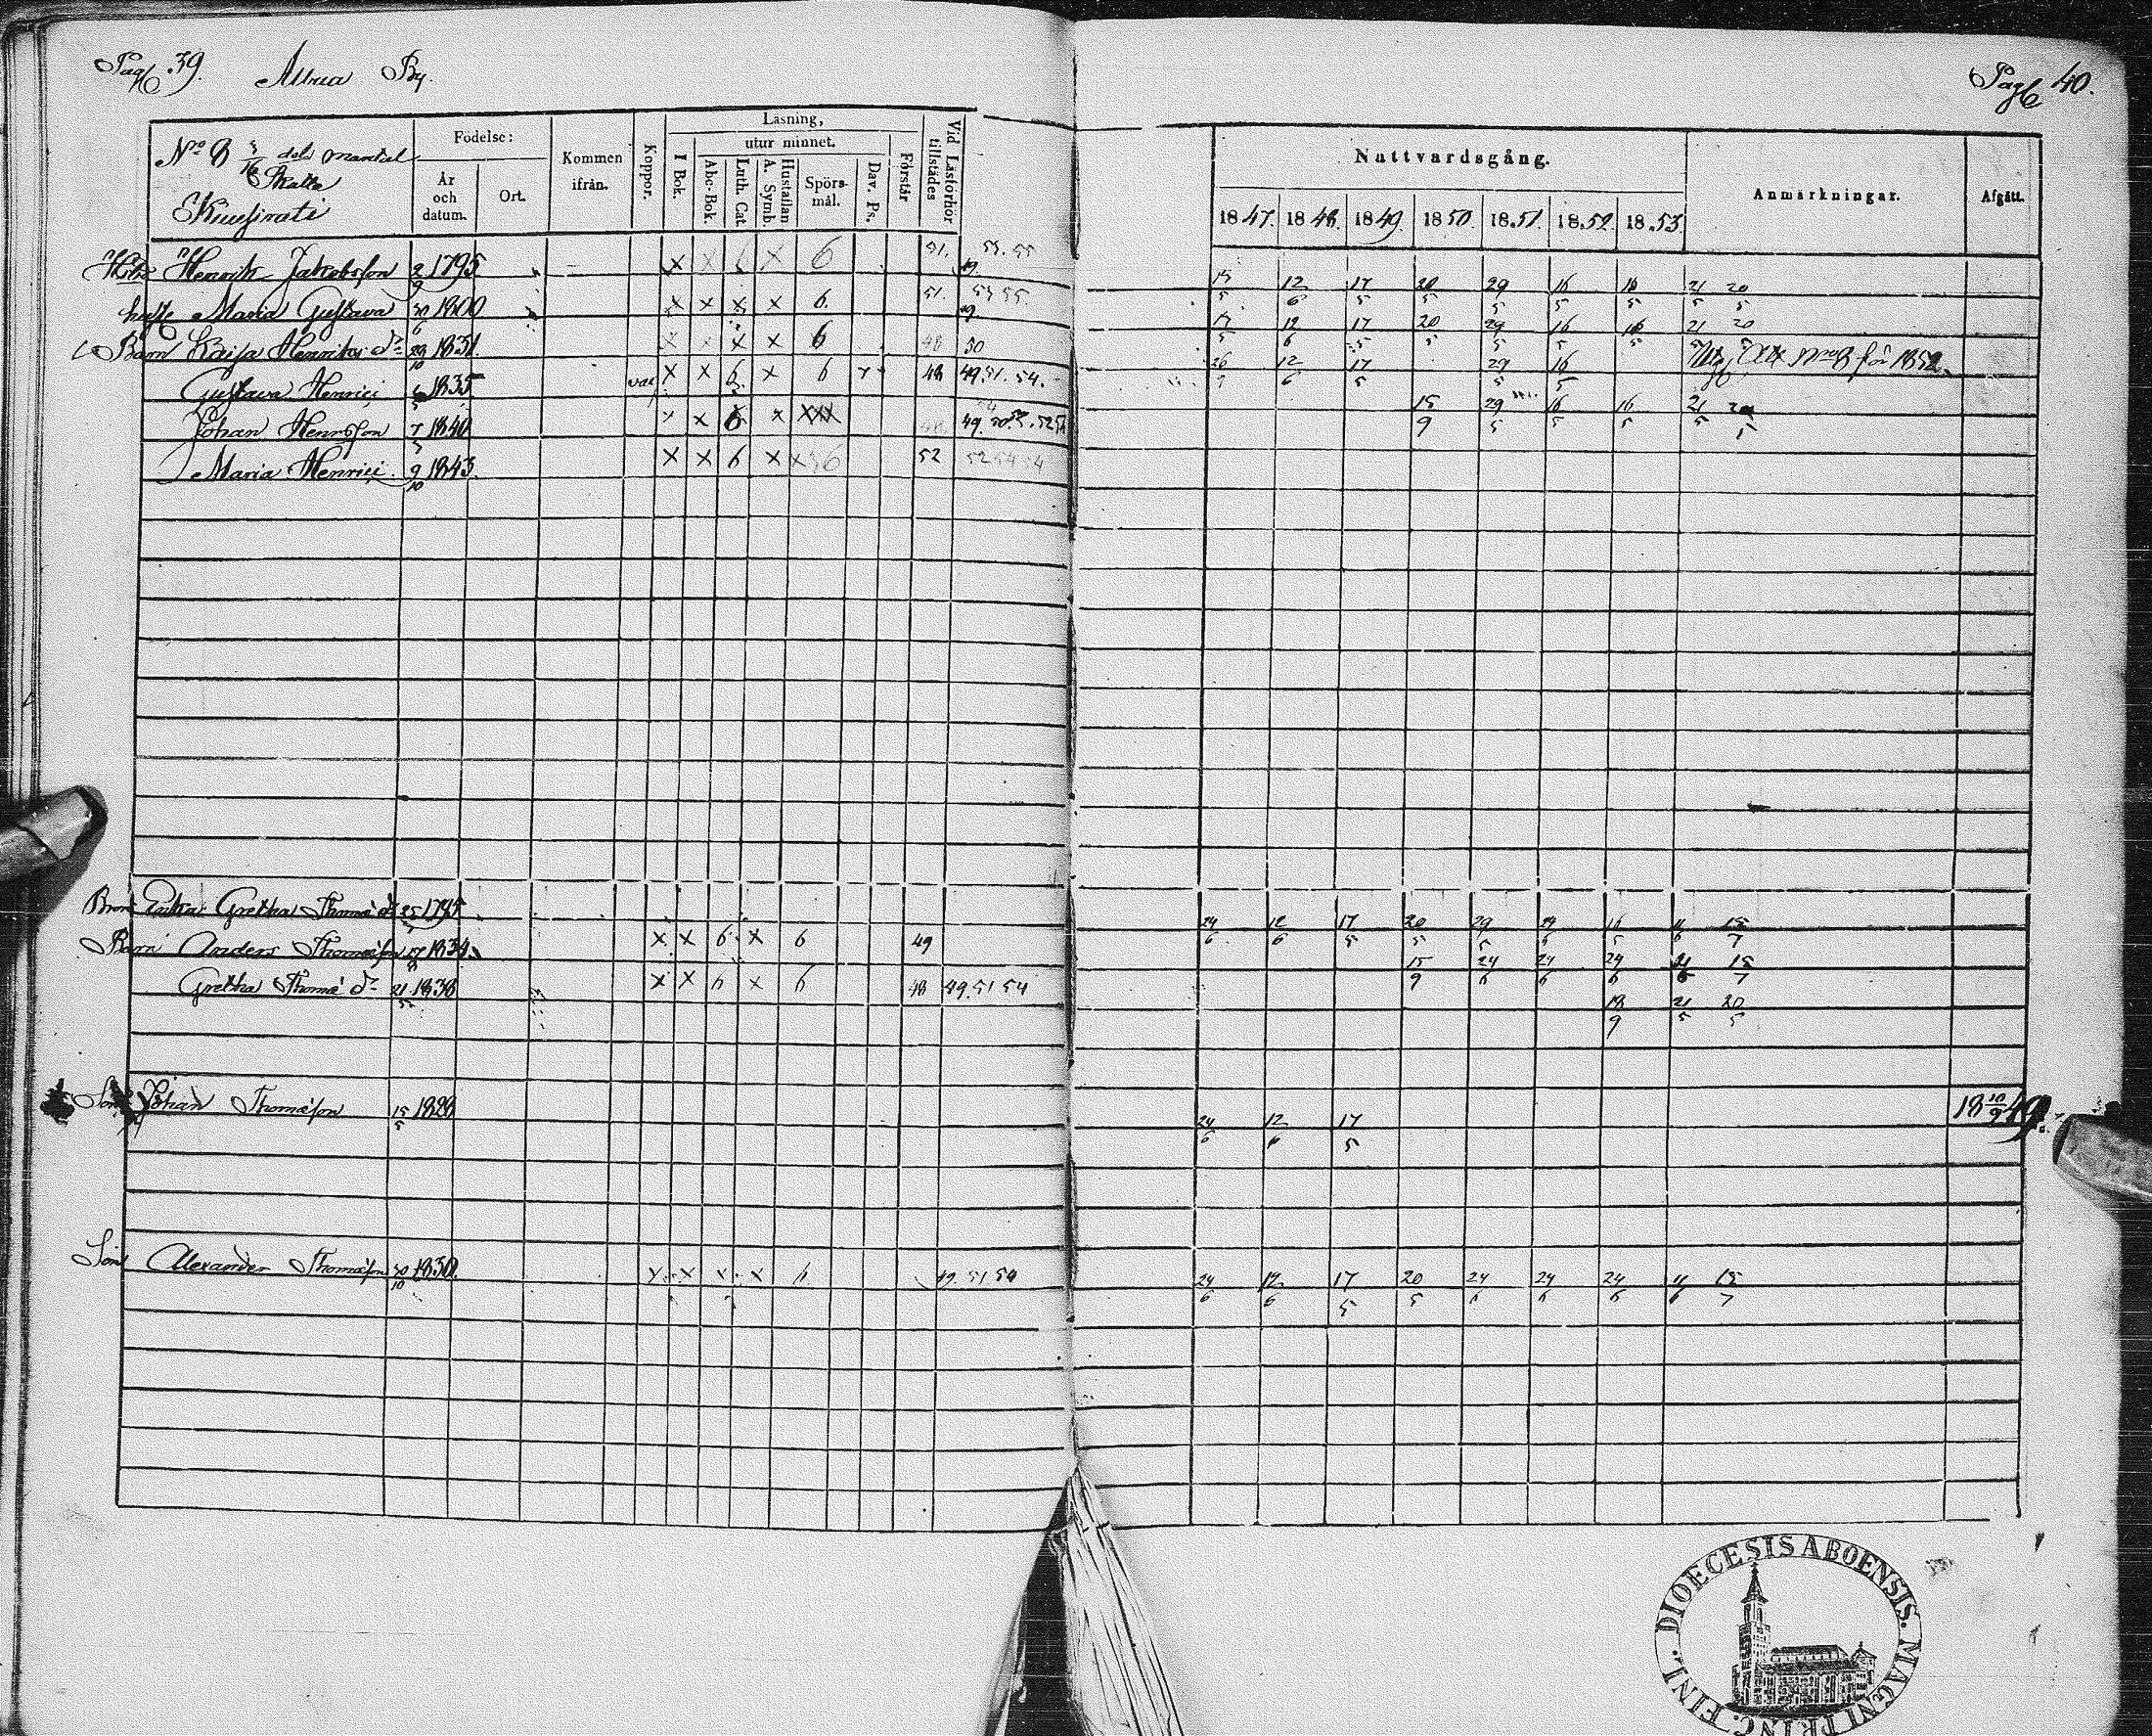 Pag 39. By.
Pag 40.
No 8 dels mantal
Skatte
Kuusirati
Födelse:
År och datum.
Ort.
Kommen ifrån.
Koppor.
Läsning,
I Bok.
utur minnet.
Abc-Bok.
Luth. Cat.
A. Symb. Hustaflan
Spörs-mål.
Dav. Ps.
Förstår
Vid Läsförhör tillstädes
Nattvardsgång.
1847. 1848. 1849. 1850. 1851. 1852. 1853.
Anmärkningar.
Afgått.
Henrik Jakobsson 2/9 1795 x x 6 x 6 51. 53. 55 49. 15/5 12/6 17/5 20/5 29/5 16/5 16/5 21/5 20/5
Maria Gustava 30/6 1800 x x x x 6. 51. 53 55 49. 17/5 12/6 17/5 20/5 29/5 16/5 16/5 21/5 20/5
Barn Kaisa Henriks dr 29/10 1831. x x x x 6 48 50 26 12/6 17/5 29/5 16/5 för 1852.
Gustava Henrici 6/5 1835 vac x x 6 x 6 48 49. 51. 54. 15/9 29/5 16/5 16/5 21/5 20/5
Johan Henrsson 7/5 1840 x x 6 x xxx 48 49. 50.
Maria Henrici 9/10 1843. x x 6 x 6 52 52 54
Gretha Thomæ dr 25 1795 24/6 12/6 17/5 20/5 29/5 24/6 16/5 11/6 15/7
Barn Anders Thomasson 17/8 1834. x x 6 x 6 49 15/9 24/6 24/6 24/6 11/6 15/7
Gretha Thomæ dr 21/5 1838 x x 6 x 6 48 49. 51 54 18/9 21/5 20/5
Son Johan Thomasson 15/5 1828 24/6 12/6 17/5 18 10/9 49.
Son Alexander Thomasson 30/10 1830. x x x x 6 49. 51 54 24/6 12/6 17/5 20/5 24/6 24/6 24/6 11/6 15/7
DIOECESIS ABOENSIS. MAGNI PRINC. FINL.